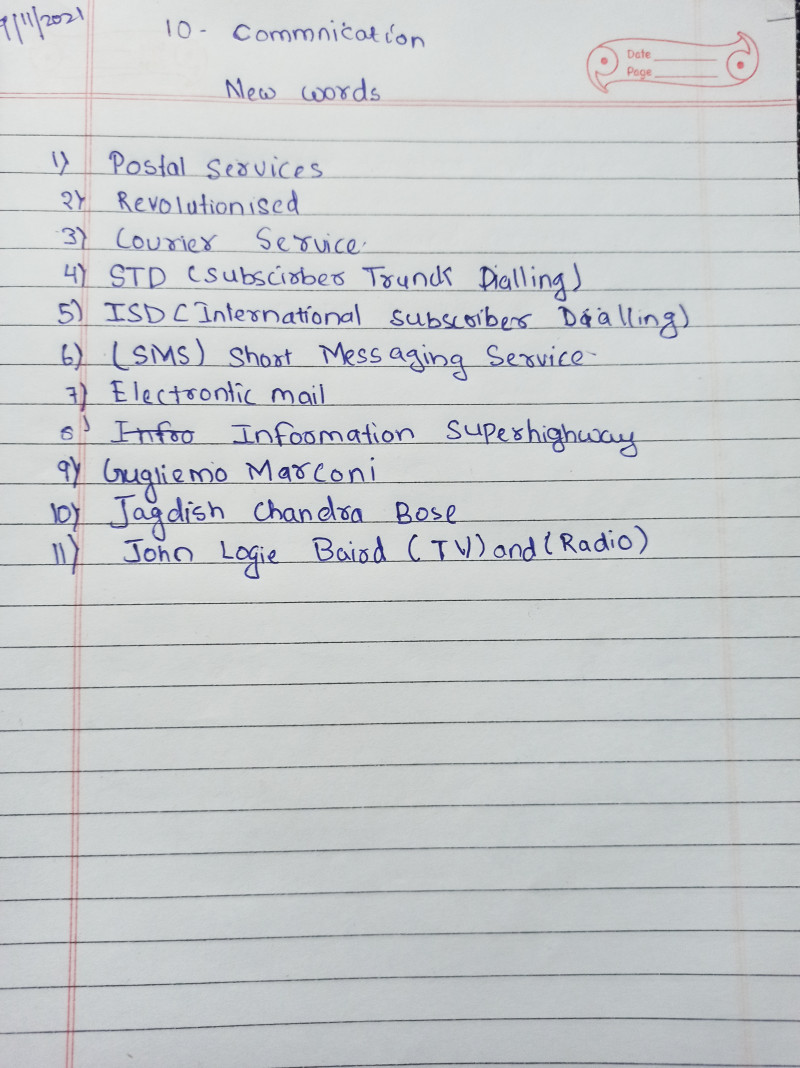 9/11/2021
10 - Commnication
Date
Page
New words
1) Postal Services
2) Revolutionised
3) Courier Service.
4) STD (Subscirber Trunck Dialling)
5) ISD (International subscriber Dialling)
6) (SMS) Short Messaging Service-
7) Electrontic mail
8) Infro Information Superhighway
9) Gugliemo Marconi
10) Jagdish Chandra Bose
11) John Logie Baird (TV) and (Radio)